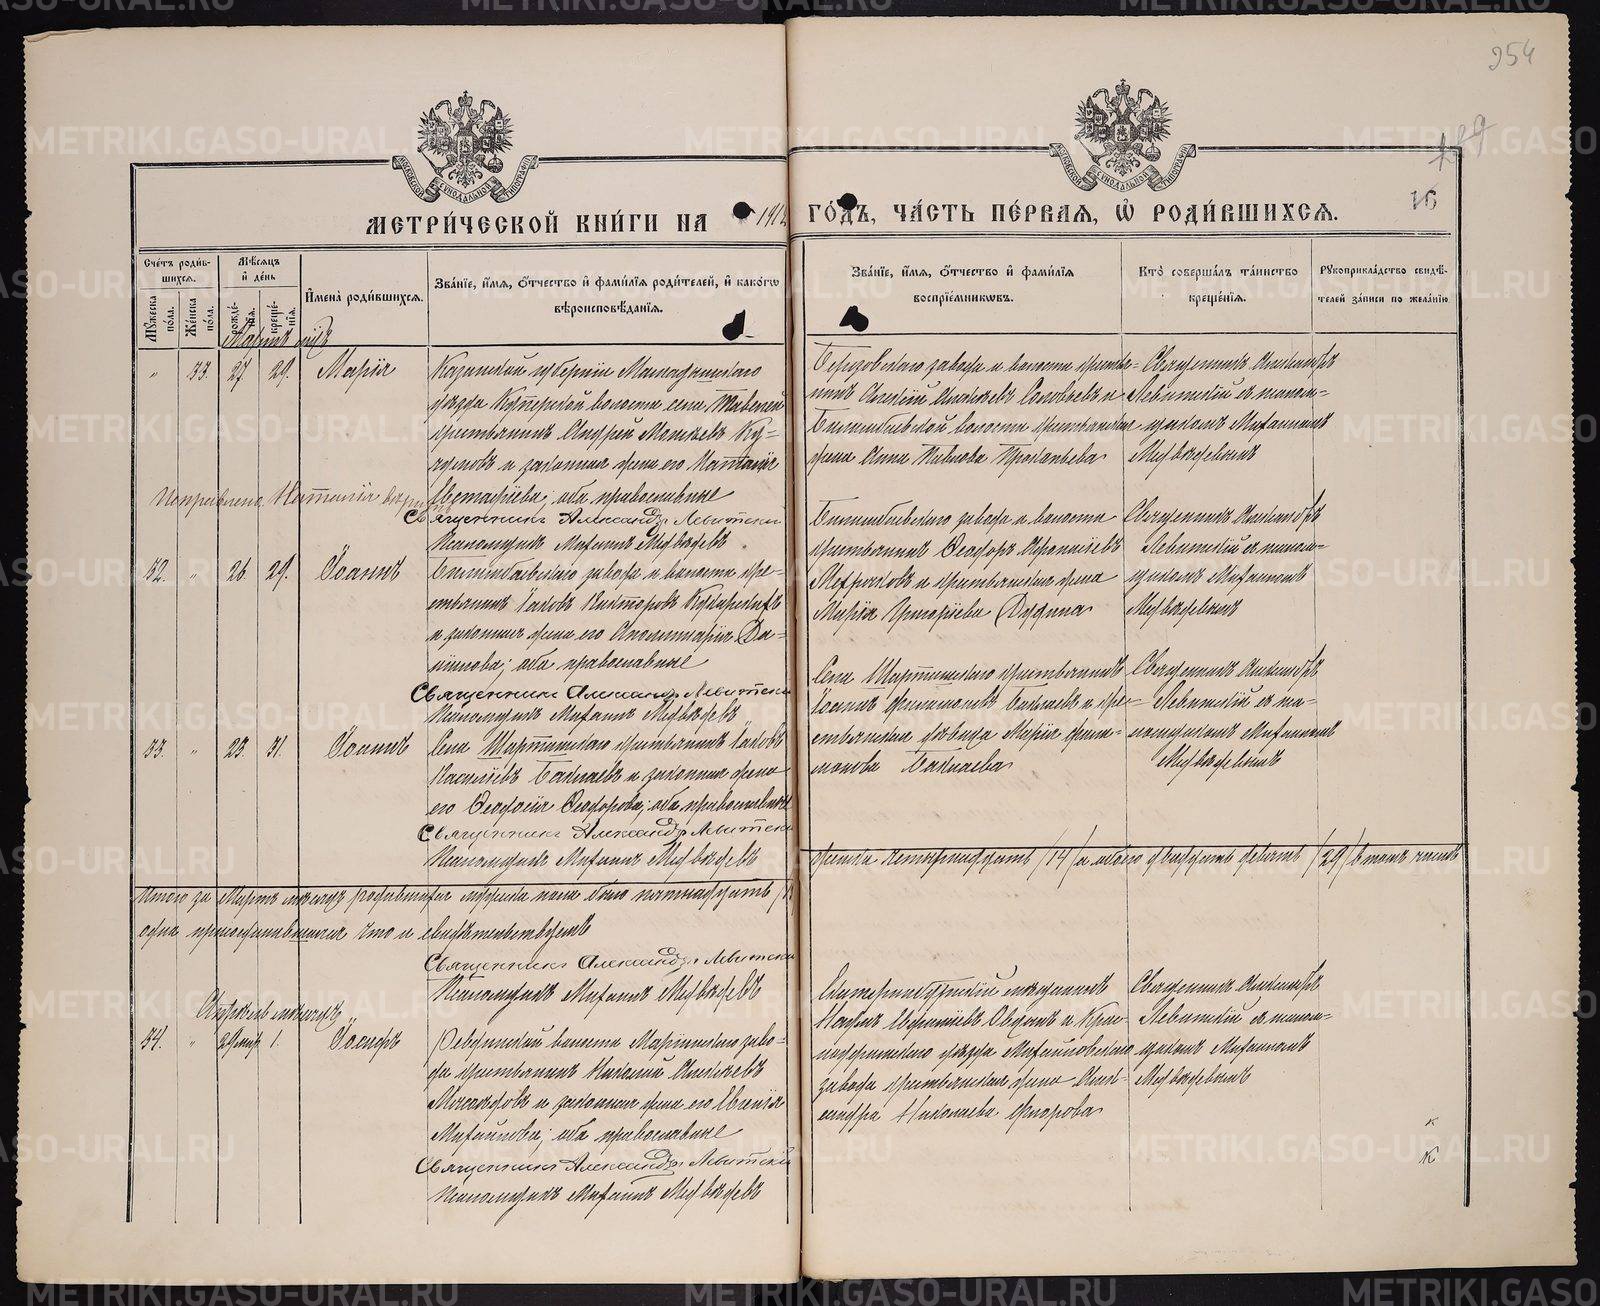 254
189
16
МЕТРИ́ЧЕСКОЙ КНИ́ГИ НА 1912 ГО́ДЪ, ЧА́СТЬ ПЕ́РВАЯ, Ѡ РОДИ́ВШИХСЯ.
Сче́тъ роди́вшихся.
Му́жеска по́ла.
Же́нска по́ла.
Мѣ́сяцъ и де́нь
рожде́нія.
креще́нія.
И҆мена̀ роди́вшихся.
Зва́нїе, и҆́мя, ѻ҆́тчество и҆ фами́лїя роди́телей, и҆ како́гѡ
вѣроисповѣ́данїя.
Зва́нїе, и҆́мя, ѻ҆́тчество и҆ фами́лїя
воспрїе́мникѡвъ.
Кто̀ соверша́лъ та́инство
креще́нїя.
Рꙋкоприкла́дство свидѣ́-
телей за́писи по жела́нїю
Мартъ мѣс.
" 33. 27 29. Марія
Казанской губерніи Мамадышскаго
уѣзда Кутерской волости села
крестьянинъ Андрей
и законная жена его Наталія
Евстафіева, оба православные
Исправлено: Наталія вѣрно
Священникъ Александръ Левитскій
Псаломщикъ Михаилъ Медвѣдевъ
Березовскаго завода и волости крестья-
нинъ Алексій Соловьевъ и
Билимбаевской волости крестьянская
жена Анна Павлова Прокопьева
Священникъ Александръ
Левитскій съ псалом-
щикомъ Михаиломъ
Медвѣдевымъ
32. " 26 29. Іоаннъ
Билимбаевскаго завода и волости кре-
стьянинъ Іаковъ Викторовъ
и законная жена его Аполлинарія Да-
ніилова; оба православные
Священникъ Александръ Левитскій
Псаломщикъ Михаилъ Медвѣдевъ
Билимбаевскаго завода и волости
крестьянинъ Ѳеодоръ
и крестьянская жена
Марія Григоріева Дудина
Священникъ Александръ
Левитскій съ псалом-
щикомъ Михаиломъ
Медвѣдевымъ
33. " 23. 31. Іоаннъ
Села Шарташскаго крестьянинъ Іаковъ
Васильевъ Баклаевъ и законная жена
его Ѳеодосія Ѳеодорова; оба православные
Священникъ Александръ Левитскій
Псаломщикъ Михаилъ Медвѣдевъ
Села Шарташскаго крестьянинъ
Іоаннъ Филимоновъ Баклаевъ и кре-
стьянская дѣвица Марія Фили-
монова Баклаева
Священникъ Александръ
Левитскій съ пса-
ломщикомъ Михаиломъ
Медвѣдевымъ
Итого за Мартъ мѣсяцъ родившихся мужска пола было пятнадцать /15/
женска четырнадцать /14/ а обоего двадцать девять /29/ въ томъ числѣ
одна присоединившаяся что и свидѣтельствуемъ
Священникъ Александръ Левитскій
Псаломщикъ Михаилъ Медвѣдевъ
Апрѣль мѣсяцъ
34. " 29 мар. 1. Іосифъ
Ревдинской волости Маріинскаго заво-
да крестьянинъ Николай
и законная жена его Евгенія
Михайлова; оба православные
Священникъ Александръ Левитскій
Псаломщикъ Михаилъ Медвѣдевъ
Екатеринбургскій мѣщанинъ
и Крас-
ноуфимскаго уѣзда Михайловскаго
завода крестьянская жена Алек-
сандра Николаева Флорова
Священникъ Александръ
Левитскій съ псалом-
щикомъ Михаиломъ
Медвѣдевымъ
к
к
METRIKI.GASO-URAL.RU